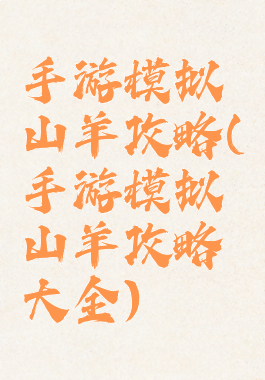 手游模拟
山羊攻略(
手游模拟
山羊攻略
大全)